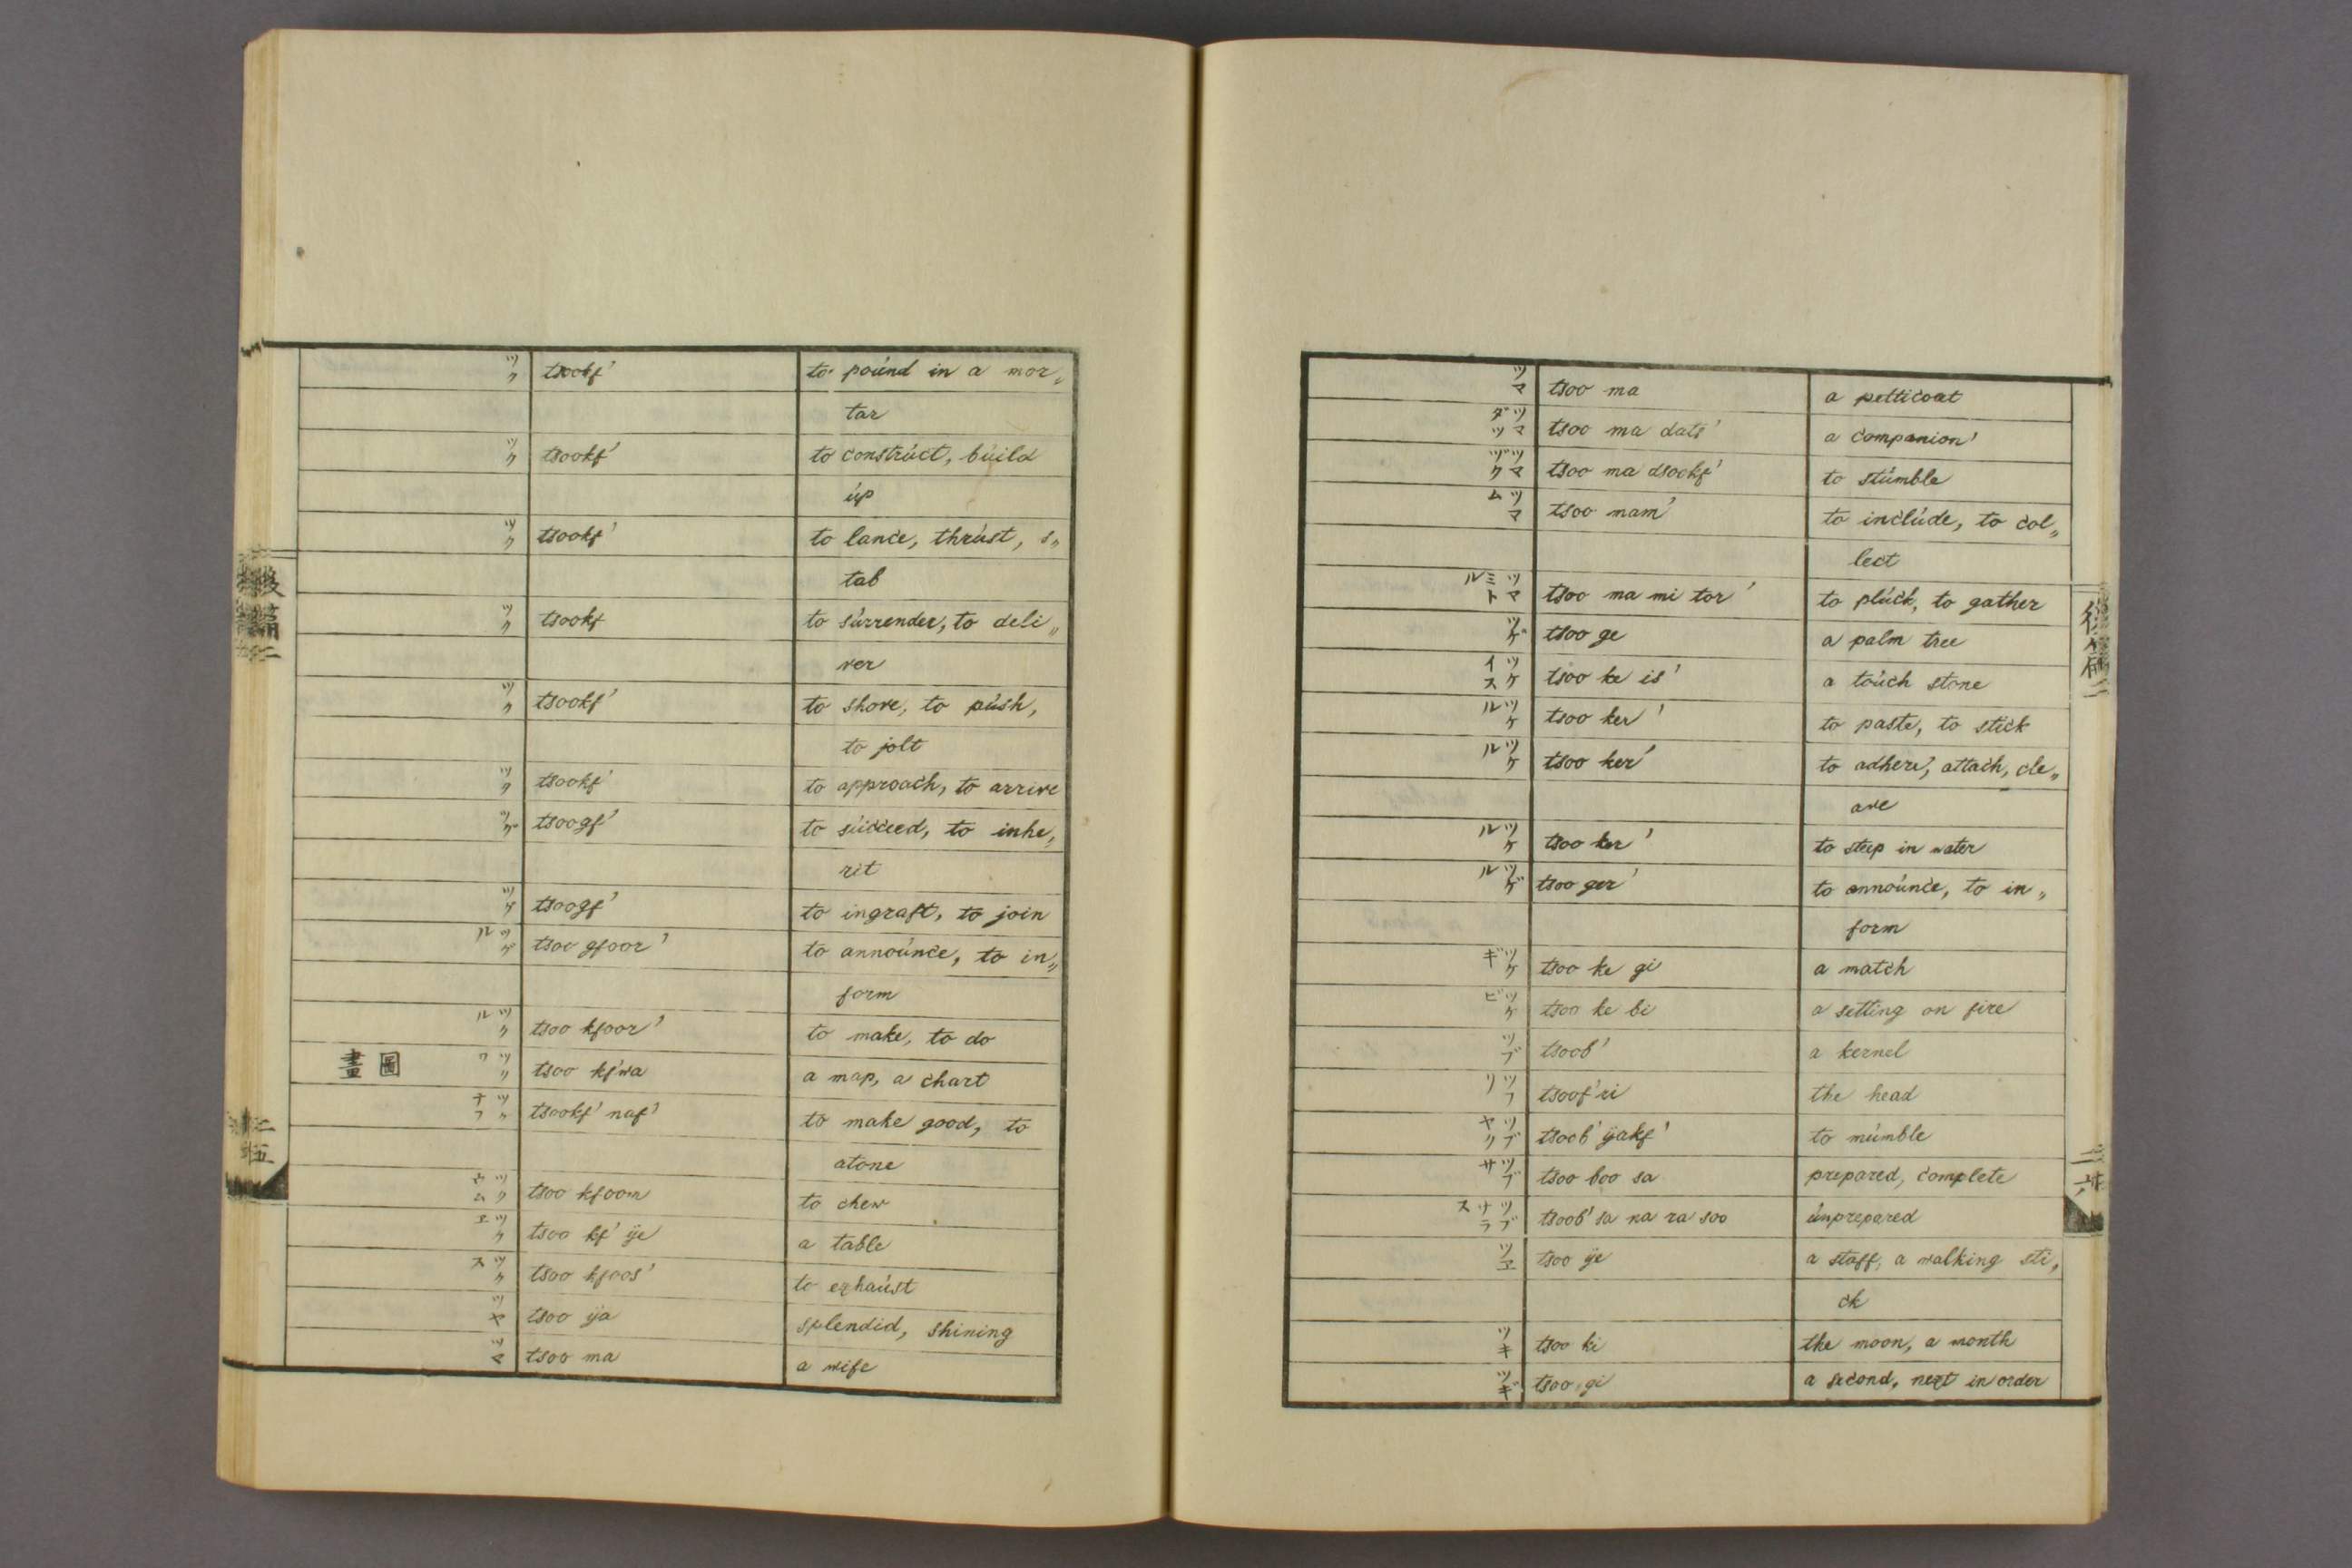 ツク tsookf' to pound in a mor„
tar
ツク tsookf' to construct, build
up
ツク tsookf' to lance, thrust, s„
tab
ツク tsookf to surrender, to deli„
ver
ツク tsookf' to shove, to push,
to jolt
ツク tsookf' to approach, to arrive
ツグ tsoogf' to succeed, to inhe„
rit
ツグ tsoogf' to ingraft, to join
ツグル tsoo gfoor' to announce, to in„
form
ツクル tsoo kfoor' to make, to do
圖畫 ツクワ tsoo kf'wa a map, a chart
ツクナフ tsookf' naf' to make good, to
atone
tsoo kfoom to chew
ツクヱ tsoo kf' ÿe a table
ツクス tsoo kfoos' to exhaust
ツヤ tsoo ÿa splendid, shining
ツマ tsoo ma a wife
後篇
ツマ tsoo ma a petticoat
ツマダツ tsoo ma dats' a companion'
ツマヅク tsoo ma dsookf' to stumble
ツマム tsoo mam' to include, to col„
lect
ツマミトル tsoo ma mi tor' to pluck, to gather
ツゲ tsoo ge a palm tree
ツケイス tsoo ke is' a touch stone
ツケル tsoo ker' to paste, to stick
ツケル tsoo ker' to adhere, attach, cle„
ave
ツケル tsoo ker' to steep in water
ツゲル tsoo ger' to announce, to in„
form
ツケギ tsoo ke gi a match
ツケビ tsoo ke bi a setting on fire
ツブ tsoob' a kernel
ツフリ tsoof'ri the head
ツブヤク tsoob' ÿakf' to mumble
ツブサ tsoo boo sa prepared, complete
tsoob' sa na ra soo unprepared
ツヱ tsoo ÿe a staff, a walking sti„
ck
ツキ tsoo ki the moon, a month
ツギ tsoo gi a second, next in order